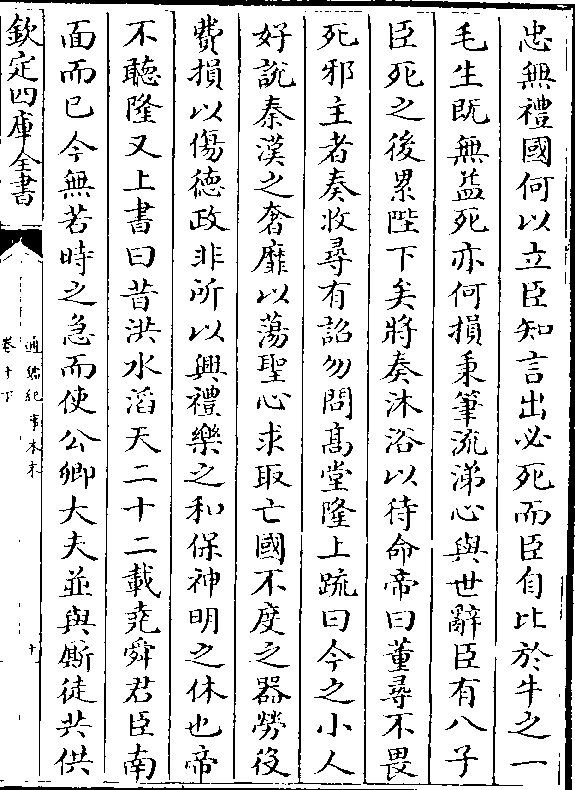 忠無禮國何以立臣知言出必死而臣自比於牛之一
毛生既無益死亦何損秉筆流涕心與世辭臣有八子
臣死之後累陛下矣將奏沐浴以待命帝曰董尋不畏
死邪主者奏收尋有詔勿問髙堂隆上䟽曰今之小人
好說秦漢之奢靡以蕩聖心求取亡國不度之器勞役
費損以傷德政非所以興禮樂之和保神明之休也帝
不聽隆又上書曰昔洪水滔天二十二載堯舜君臣南
面而已今無若時之急而使公卿大夫並與廝徒共供
欽定四庫全書
通鑑紀事本末
卷十下
十